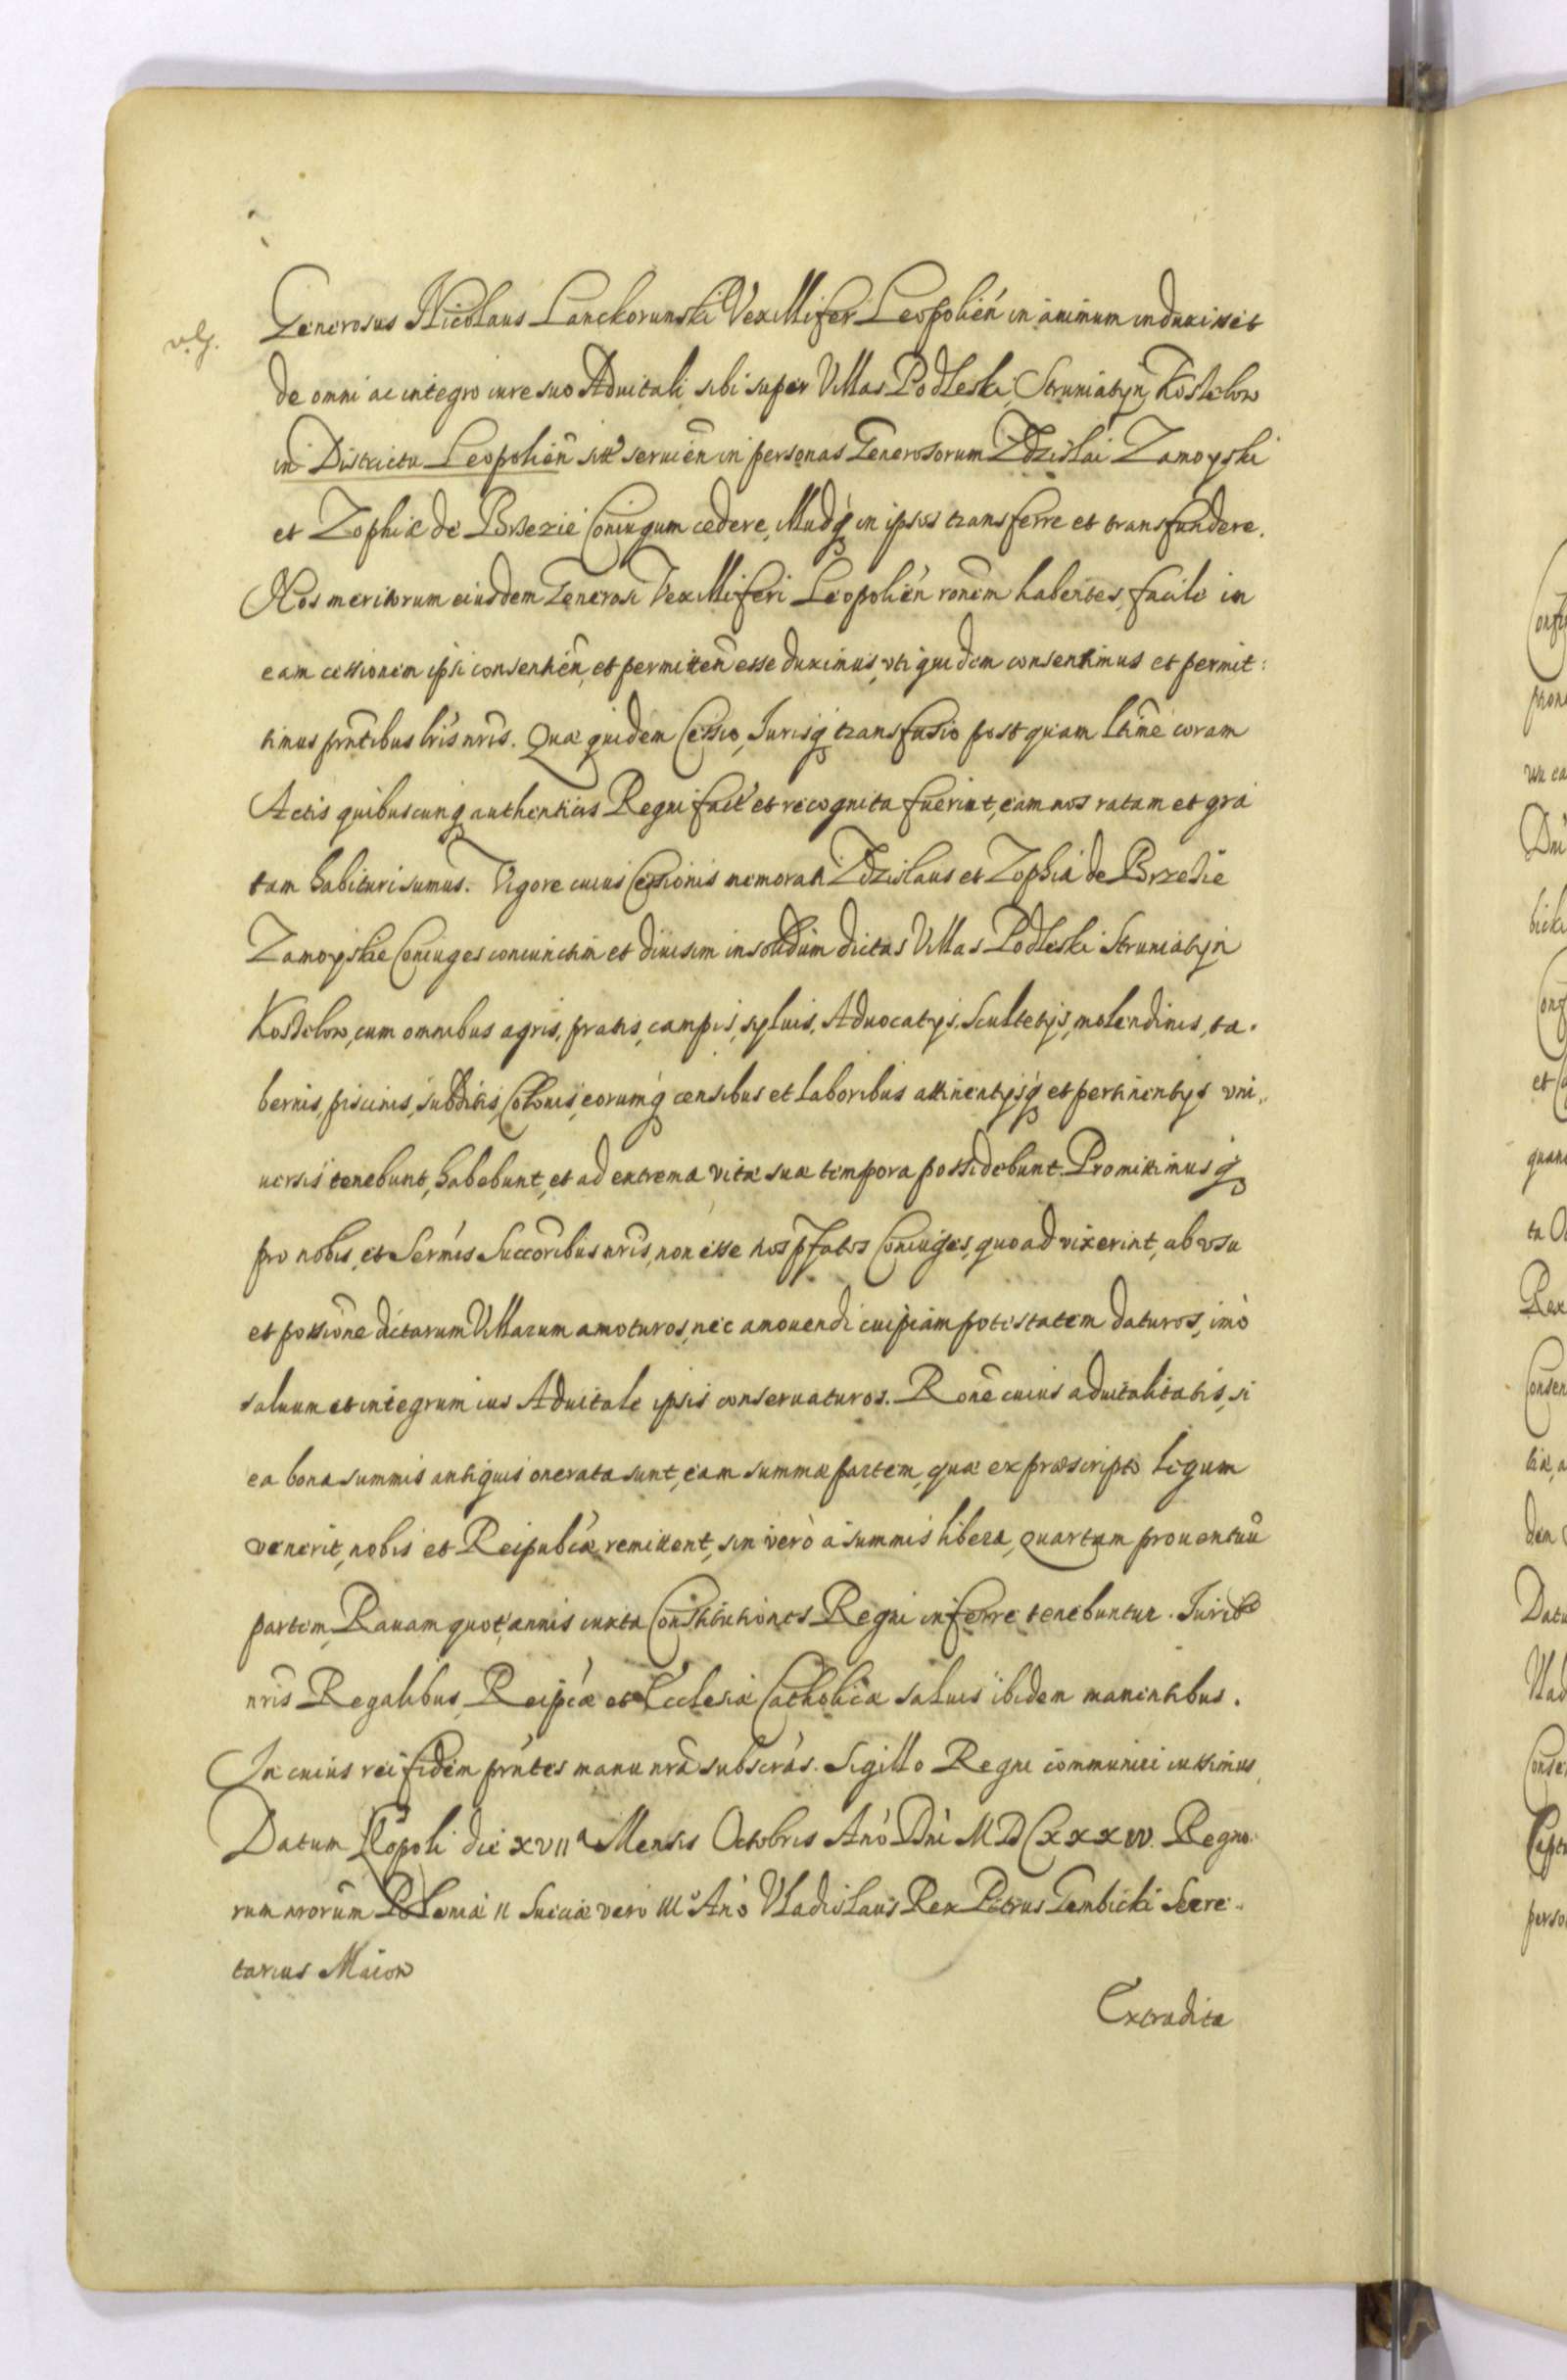 Generosus Nicolaus Lanckorunski Vexillifer Leopolień in animum induxisset
de omni ac integro iure suo Aduitali sibi super Villas Podleski, Struniatyn, Kosdelow
in Districtu Leopolień sitt seruień in personas Generosorum Zdzislai Zamoyski
et Zophiæ de Brzezie Coniugum cedere, illudq́ in ipsos transferre et transfundere.
Nos meritorum eiusdem Generosi Vexilliferi Leopolień ronem habentes, facile in
eam cessionem ipsi consentień, et permitteñ esse duximus, vti quidem consentimus et permit:
timus prntibus lris nris. Quæ quidem Cessio, Jurisq́ transfusio postquam ltime coram
Actis quibuscunq́ authenticis Regni fact' et recognita fuerint, eam nos ratam et gra
tam habituri sumus. Vigore cuius Cessionis memorati Zdzislaus et Zophia de Brzezie
Zamoyskie Coniuges coniunctim et diuisim in solidum dictas Villas Podleski Struniatyn
Kosdelow, cum omnibus agris, pratis, campis, syluis, Aduocatijs, Scultetijs, molendinis, ta.
bernis, piscinis, subditis, Colonis, eorumq́ censibus et laboribus attinentijsq́ et pertinentijs vni,,
uersis tenebunt, habebunt, et ad extrema vitæ suæ tempora possidebunt. Promittimusq́
pro nobis, et Sermis Succoribus nris, non esse nos pfatos Coniuges, quoad vixerint, ab vsu
et possione dictarum Villarum amoturos, nec amouendi cuipiam potestatem daturos, imò
saluum et integrum ius Aduitale ipsis conseruaturos. Rone cuius aduitalitatis, si
ea bona summis antiquis onerata sunt, eam summæ partem, quæ ex præscripto legum
venerit, nobis et Reipublcæ remittent, sin verò a summis libera, quartam prouentuũ
partem, Rauam quot, annis iuxta Constitutiones Regni inferre tenebuntur. Jurib9
nris Regalibus, Reipcæ et Ecclesiæ Catholicæ saluis ibidem manentibus.
In cuius rei fidem prntes manu nrâ subscrás. Sigillo Regni communiri iussimus,
Datum Leopoli die XVIIa Mensis Octobris Anò Dni MDCXXXIV. Regno.
rum nrorum Poloniæ II Sueciæ vero III° Anò Vladislaus Rex Petrus Gembicki Secre..
tarius Maior
Extradita